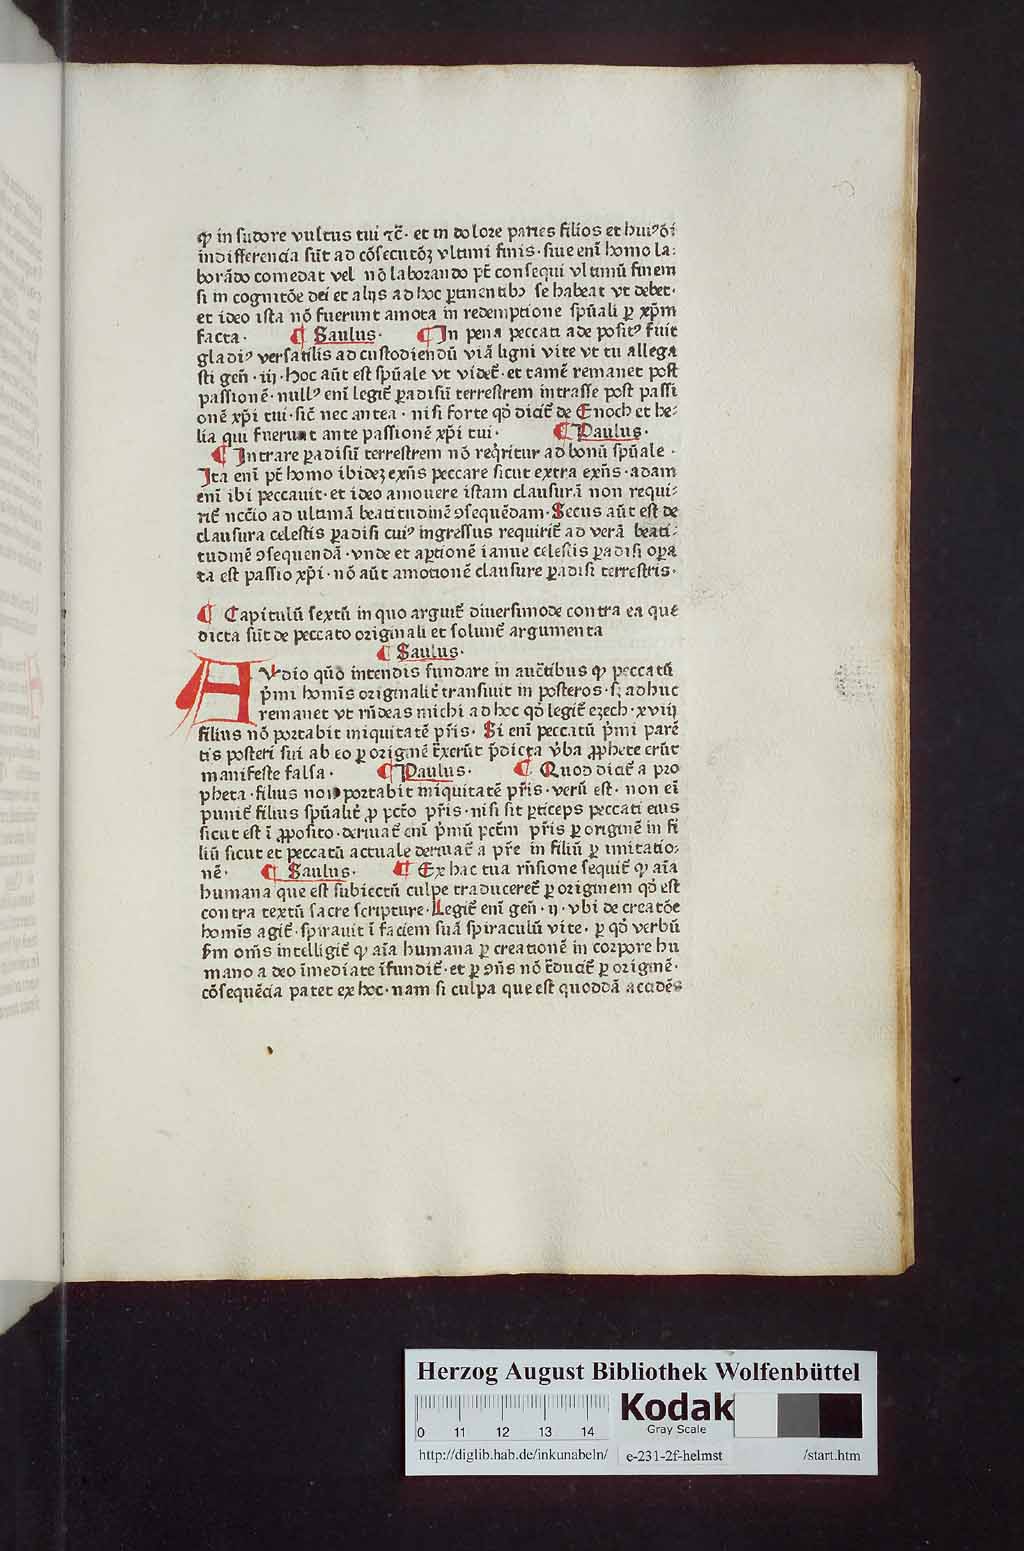 ꝙ in sudore vultus tui ⁊c̃· et in dolore paries filios et hui⁹õi
indifferencia sūt ad cōsecutōꝫ vltimi finis· siue enī homo la⸗
borādo comedat vel nō laborando pt̄ consequi vltimū finem
si in cognitōe dei et alijs ad hoc ꝑtinentibꝫ se habeat vt debet·
et ideo ista nō fuerunt amota in redemptione spūali ꝑ xp̄m
facta· ¶ Saulus· ¶ In pena peccati ade posit⁹ fuit
gladi⁹ versatilis ad custodiendū viā ligni vite vt tu allega
sti gen̄· iij· Hoc aūt est spūale vt videt̄· et tamē remanet post
passionē· null⁹ enī legit̄ ꝑadisū terrestrem intrasse post passi
onē xp̄i tui· sic̄ nec antea· nisi forte qd̄ dicit̄ de Enoch et he⸗
lia qui fuerunt ante passionē xp̄i tui· ¶ Paulus·
¶ Intrare ꝑadisū terrestrem nō req̄ritur ad bonū spūale·
Ita enī pt̄ homo ibideꝫ exn̄s peccare sicut extra exn̄s· adam
enī ibi peccauit· et ideo amouere istam clausurā non requi⸗
rit̄ nccīo ad vltimā beatitudinē ꝯsequēdam· Secus aūt est de
clausura celestis ꝑadisi cui⁹ ingressus requirit̄ ad verā beati⸗
tudinē ꝯsequendā· vnde et aꝑtionē ianue celestis ꝑadisi oꝑa
ta est passio xp̄i· nō aūt amotionē clausure ꝑadisi terrestris·
¶ Capitulū sextū in quo arguit̄ diuersimode contra ea que
dicta sūt de peccato originali et soluunt̄ argumenta
¶ Saulus·
AVdio qūo intendis fundare in auc̄tibus ꝙ peccatū
p̄mi homīs originalit̄ transiuit in posteros· sꝫ adhuc
remanet vt rn̄deas michi ad hoc qd̄ legit̄ ezech· xviij
filius nō portabit iniquitatē pr̄is· Si enī peccatū p̄mi parē
tis posteri sui ab eo ꝑ originē t̄xerūt p̄dicta v̄ba ꝓphete erūt
manifeste falsa· ¶ Paulus· ¶ Quod dicit̄ a pro
pheta· filius non portabit iniquitatē pr̄is· verū est· non eī
punit̄ filius spūalit̄ ꝓ pctō pr̄is· nisi sit ꝑticeps peccati eius
sicut est ī ꝓposito· deriuat̄ enī p̄mū pctm̄ pr̄is ꝑ originē in fi
liū sicut et peccatū actuale deriuat̄ a pr̄e in filiū ꝑ imitatio⸗
nē· ¶ Saulus· ¶ Ex hac tua rn̄sione sequit̄ ꝙ aīa
humana que est subiectū culpe traduceret̄ ꝑ originem qd̄ est
contra textū sacre scripture· Legit̄ enī gen̄· ij· vbi de creatōe
homīs agit̄· spirauit ī faciem suā spiraculū vite· ꝑ qd̄ verbū
sm̄ om̄s intelligit̄ ꝙ aīa humana ꝑ creationē in corpore hu
mano a deo īmediate īfundit̄· et ꝑ ꝯn̄s nō t̄ducit̄ ꝑ originē·
cōsequēcia patet ex hoc· nam si culpa que est quoddā accidēs
Herzog August Bibliothek Wolfenbüttel
Kodak
Gray Scale
0 11 12 13 14
http://diglib.hab.de/inkunabeln/ e-231-2f-helmst /start.htm